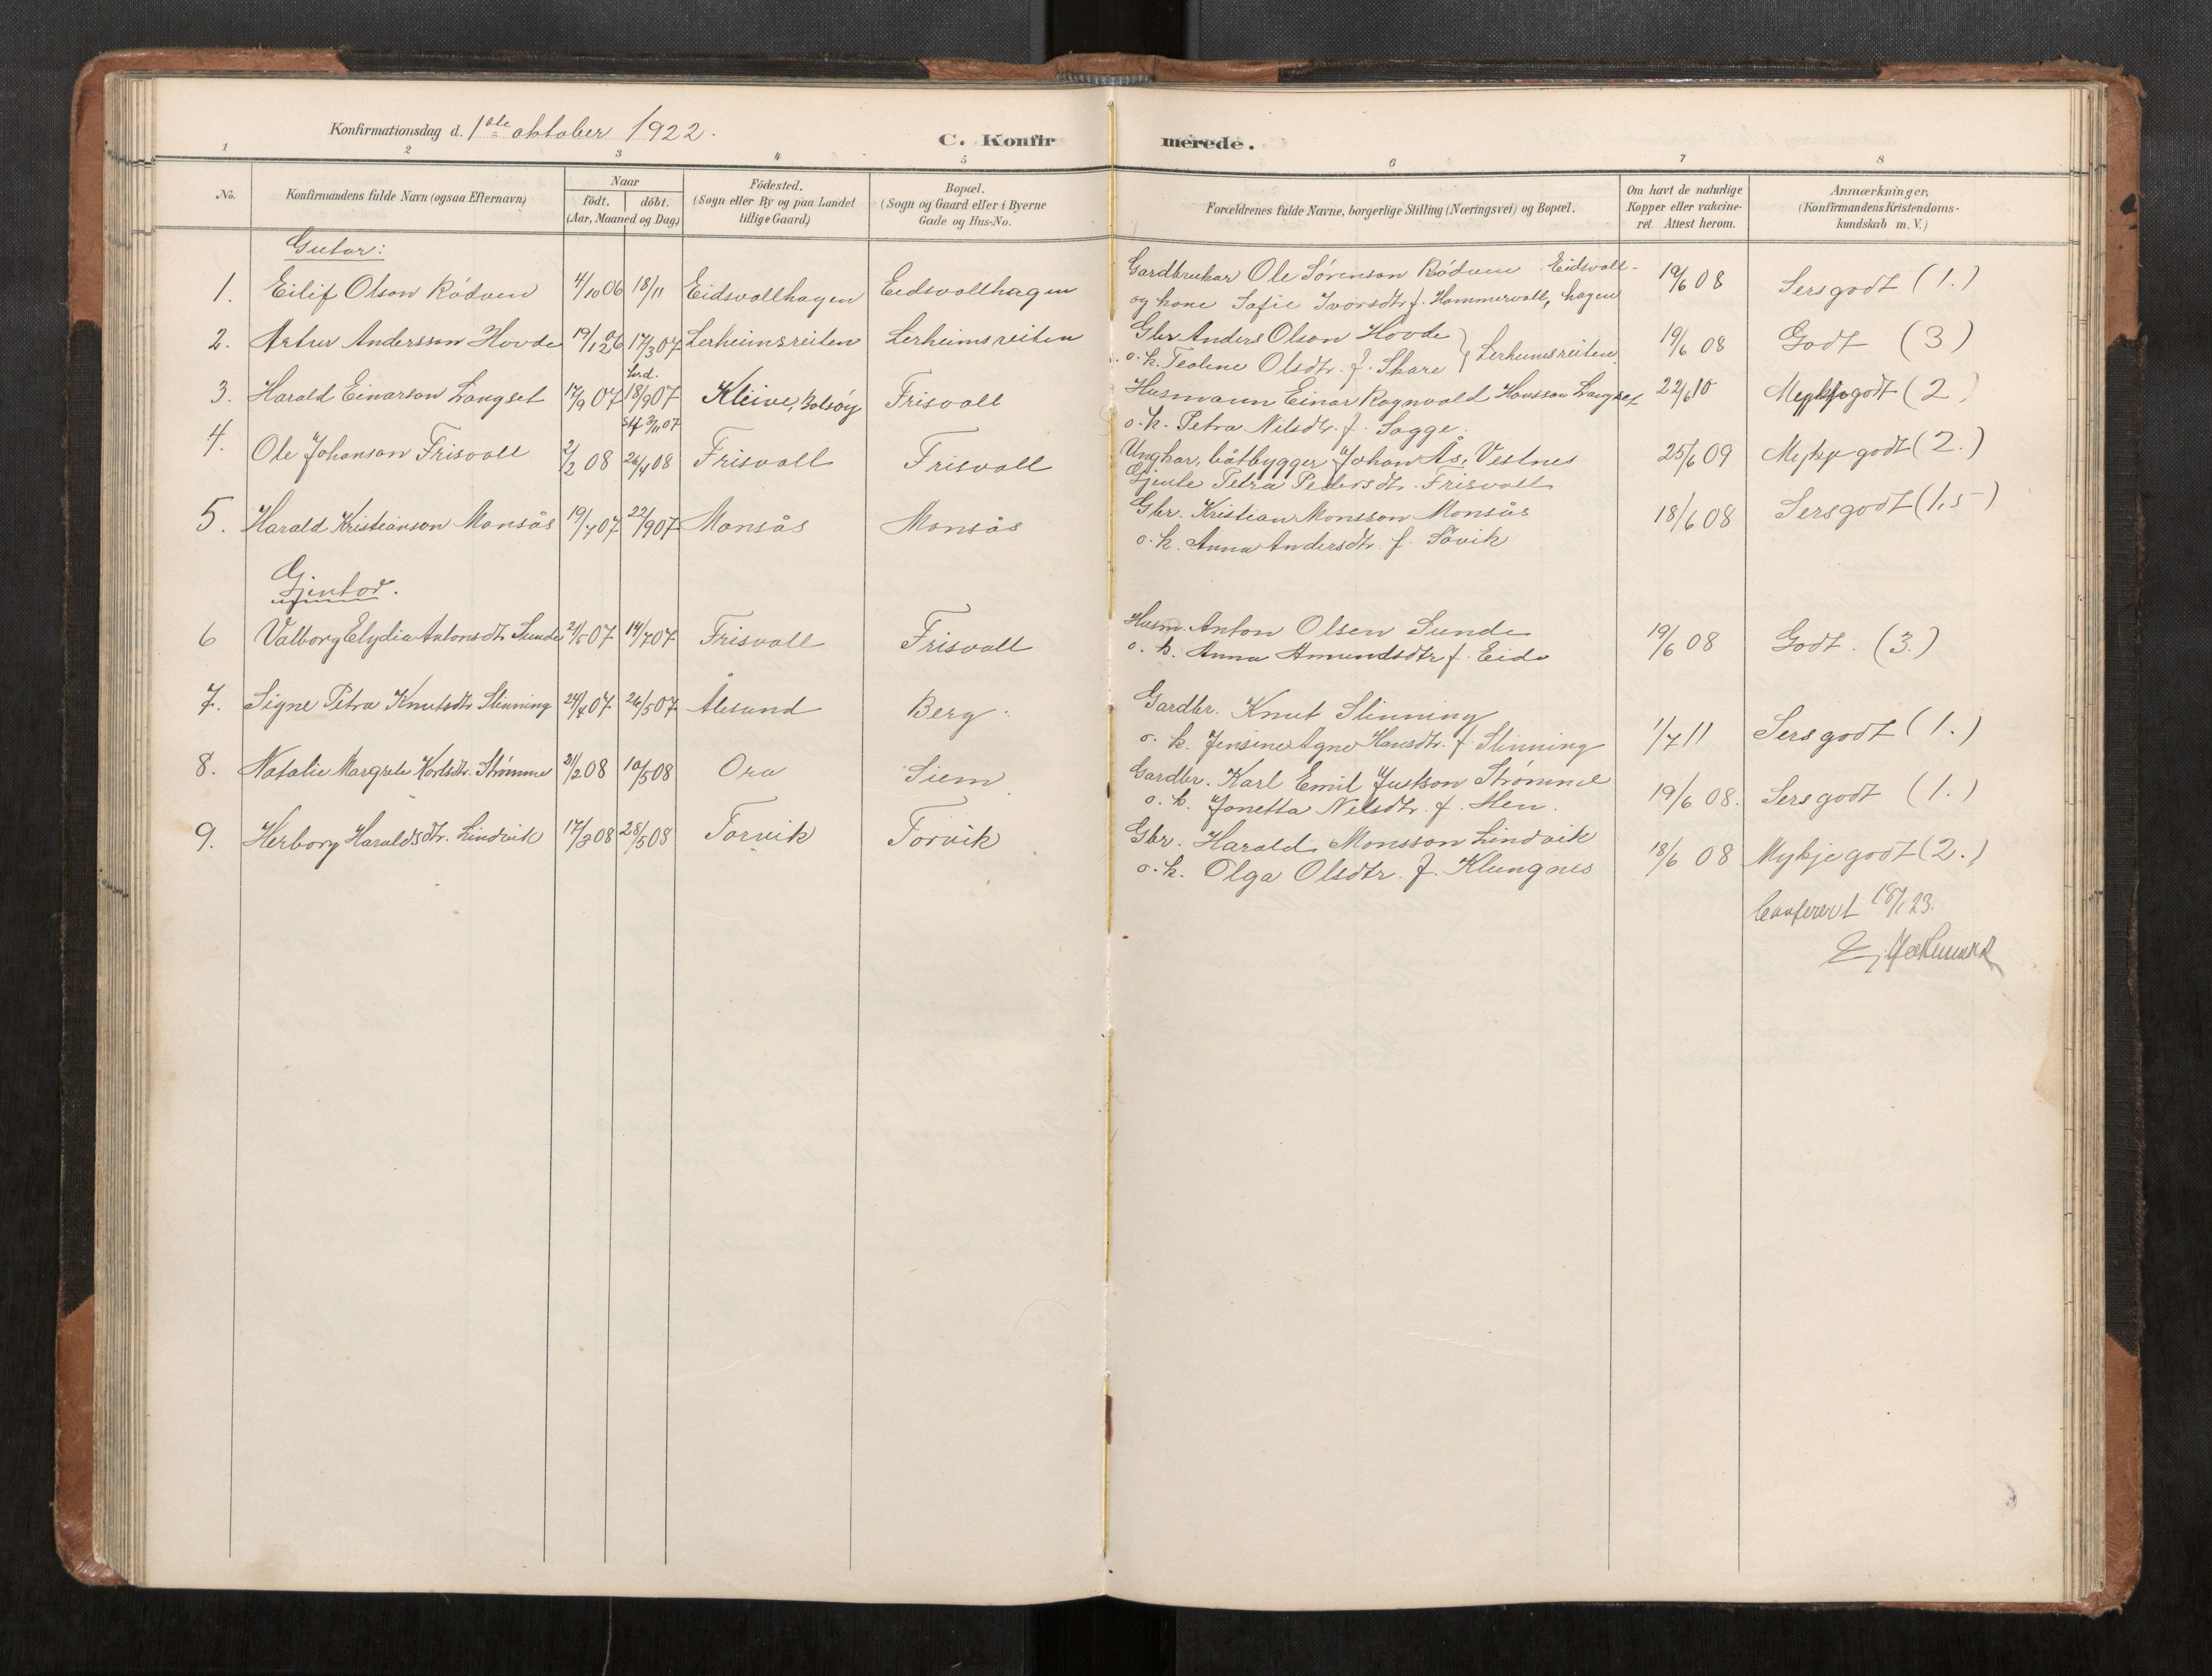 Konfirmationsdag d. 1ste oktober 1922.
C. Konfirmerede.
1 2 3 4 5 6 7 8
No. Konfirmandens fulde Navn (ogsaa Efternavn) Naar födt. döbt. (Aar, Maaned og Dag) Födested. (Sogn eller By og paa Landet tillige Gaard) Bopæl. (Sogn og Gaard eller i Byerne Gade og Hus-No. Forældrenes fulde Navne, borgerlige Stilling (Næringsvei) og Bopæl. Om havt de naturlige Kopper eller vakcineret. Attest herom. Anmærkninger. (Konfirmandens Kristendomskundskab m. V.)
Gutar:
1. Eilif Olson Rödven 4/10 06 18/11 Eidsvollhagen Eidsvollhagen Gardbrukar Ole Sörenson Rödven Eidsvoll- 19/6 08 Sersgodt (1.)
og kone Sofie Ivorsdtr f. Hammervoll, hagen
2. Artur Andersson Hovde 19/12 06 17/3 07 Lerheimsreiten Lerheimsreiten Gbr Anders Olson Hovde 19/6 08 Godt (3)
o. k. Teoline Olsdtr. f. Skare } Lerheimsreiten
3. Harald Einarson Langset 17/9 07 hv.d. 18/9 07 Kleive, Bolsöy Frisvoll Husmann Einar Ragnvald Hansson Langset 22/6 10 Mykje godt (2)
st. 3/11 07 o. k. Petra Nilsdtr. f. Sogge.
4. Ole Johanson Frisvoll 2/2 08 26/4 08 Frisvoll Frisvoll Ungkar, båtbygger Johan Ås, Vestnes 25/6 09 Mykje godt (2.)
Gjente Petra Pedersdtr. Frisvoll
5. Harald Kristianson Monsås 19/7 07 22/9 07 Monsås Monsås Gbr. Kristian Monsson Monsås 18/6 08 Sersgodt (1,5)
o. k. Anna Andersdtr. f. Sövik
Gjentor.
6 Valborg Elydia Antonsdtr Sunde 21/5 07 14/7 07 Frisvoll Frisvoll Husm. Anton Olsen Sunde 19/6 08 Godt. (3.)
o. k. Anna Amundsdtr f. Eide
7. Signe Petra Knutsdtr Slinning 24/4 07 26/5 07 Ålesund Berg Gardbr. Knut Slinning 1/7 11 Sersgodt (1.)
o. k. Jensine Agne Hansdtr. f. Slinning
8. Natalie Margrete Karlsdtr. Strømme 21/2 08 10/5 08 Ora Siem Gardbr. Karl Emil Justson Strømme 19/6 08. Sersgodt (1.)
o. k. Jonetta Nilsdtr. f. Hen.
9. Herborg Haraldsdtr. Lindvik 17/3 08 28/5 08 Torvik Torvik Gbr. Harald Monsson Lindvik 18/6 08 Mykje godt (2.)
o. k. Olga Olsdtr. f. Klungnes
Conferert 18/1 23.